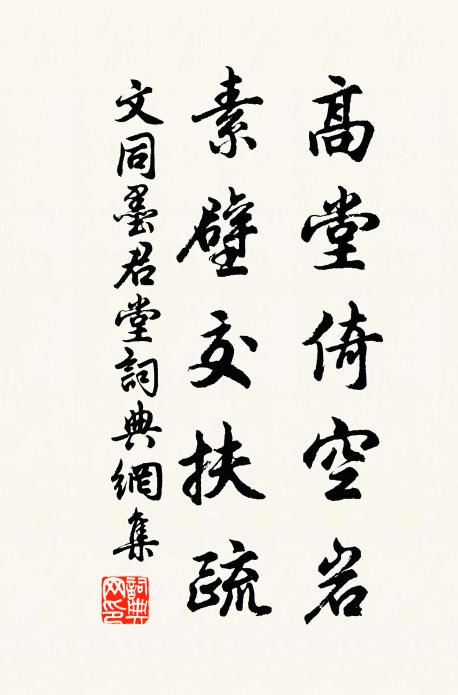 高堂倚空岩
素壁交扶疏
文同墨君堂詞典網集
詞典网印